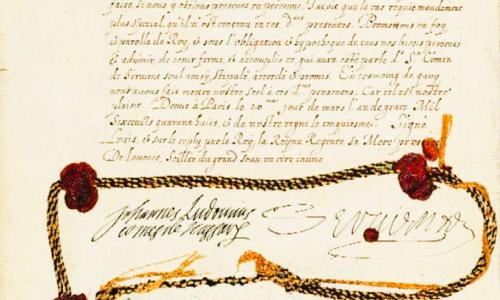 faire, si nous y estions presens en personne, Jaçoit que le cas requit mandement
plus special, qu'il n'est contenu en ces d.tes presentes. Promettons en foy
et parolle de Roy, et sous l'obligation et hypotheque de tous nos biens presens
et advenir, de tenir ferme, et accomplir ce, qui aura esté par le d.t S.r Comte
de Servient stipulé, accordé et promis. En tesmoing de quoy
nous avons fait mettre nostre Seel à ces d.tes presentes. Car tel est nostre
plaisir. Donné à Paris le 20.me jour de mars l'an de grace Mil
Six cents quarante huict, et de nostre regne le cinquiesme. Signé
Louis, et sur le reply par le Roy, la Reyne Regente sa Mere presente
De Lomenie, Seellé du grand Seau en cire jaune
Johannes Ludovicus
comes de Nassau
Servien